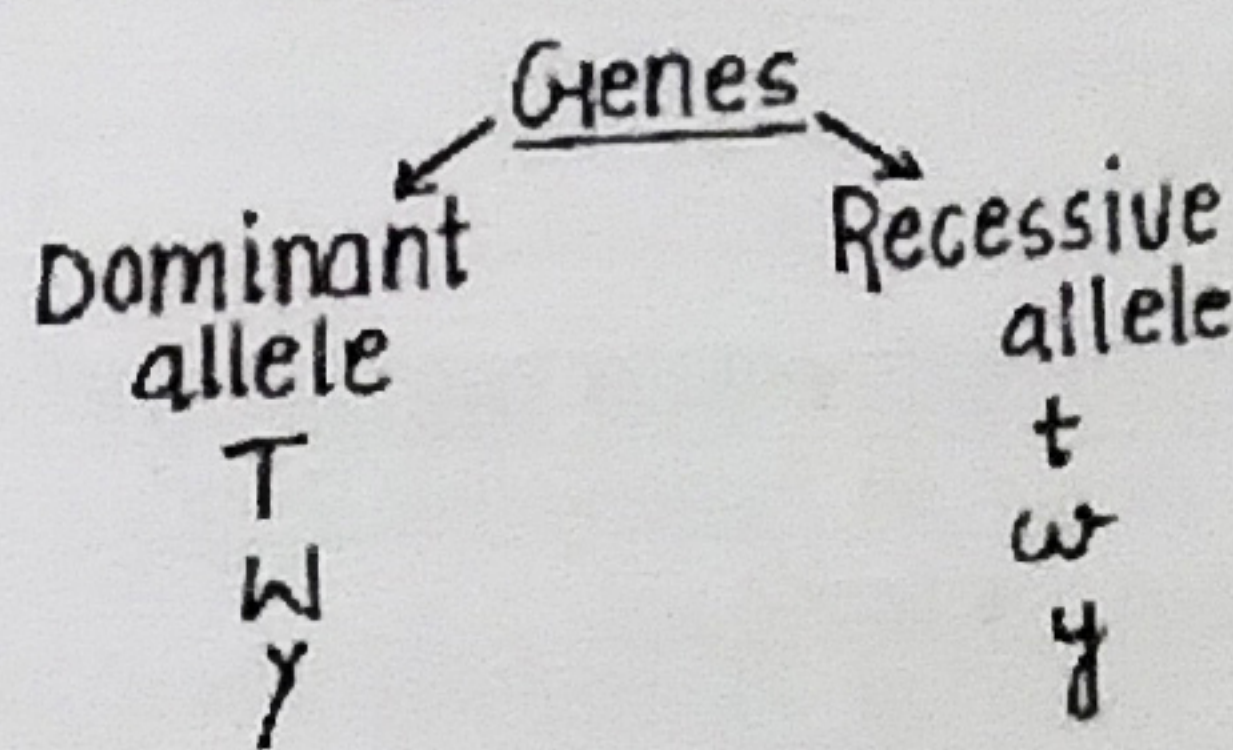 Genes
Dominant
allele
T
W
Y
Recessive
allele
t
w
y